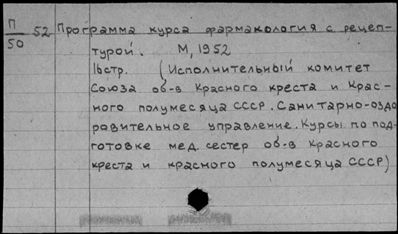 П/50 52 Программа курса фармакология с рецеп-
турой. М, 1952
16стр. (Исполнительный комитет
Союза об-в Красного креста и Крас-
ного полумесяца СССР. Санитарно-оздо
ровительное управление. Курсы по под-
готовке мед. сестер об-в Красного
креста и красного полумесяца СССР)